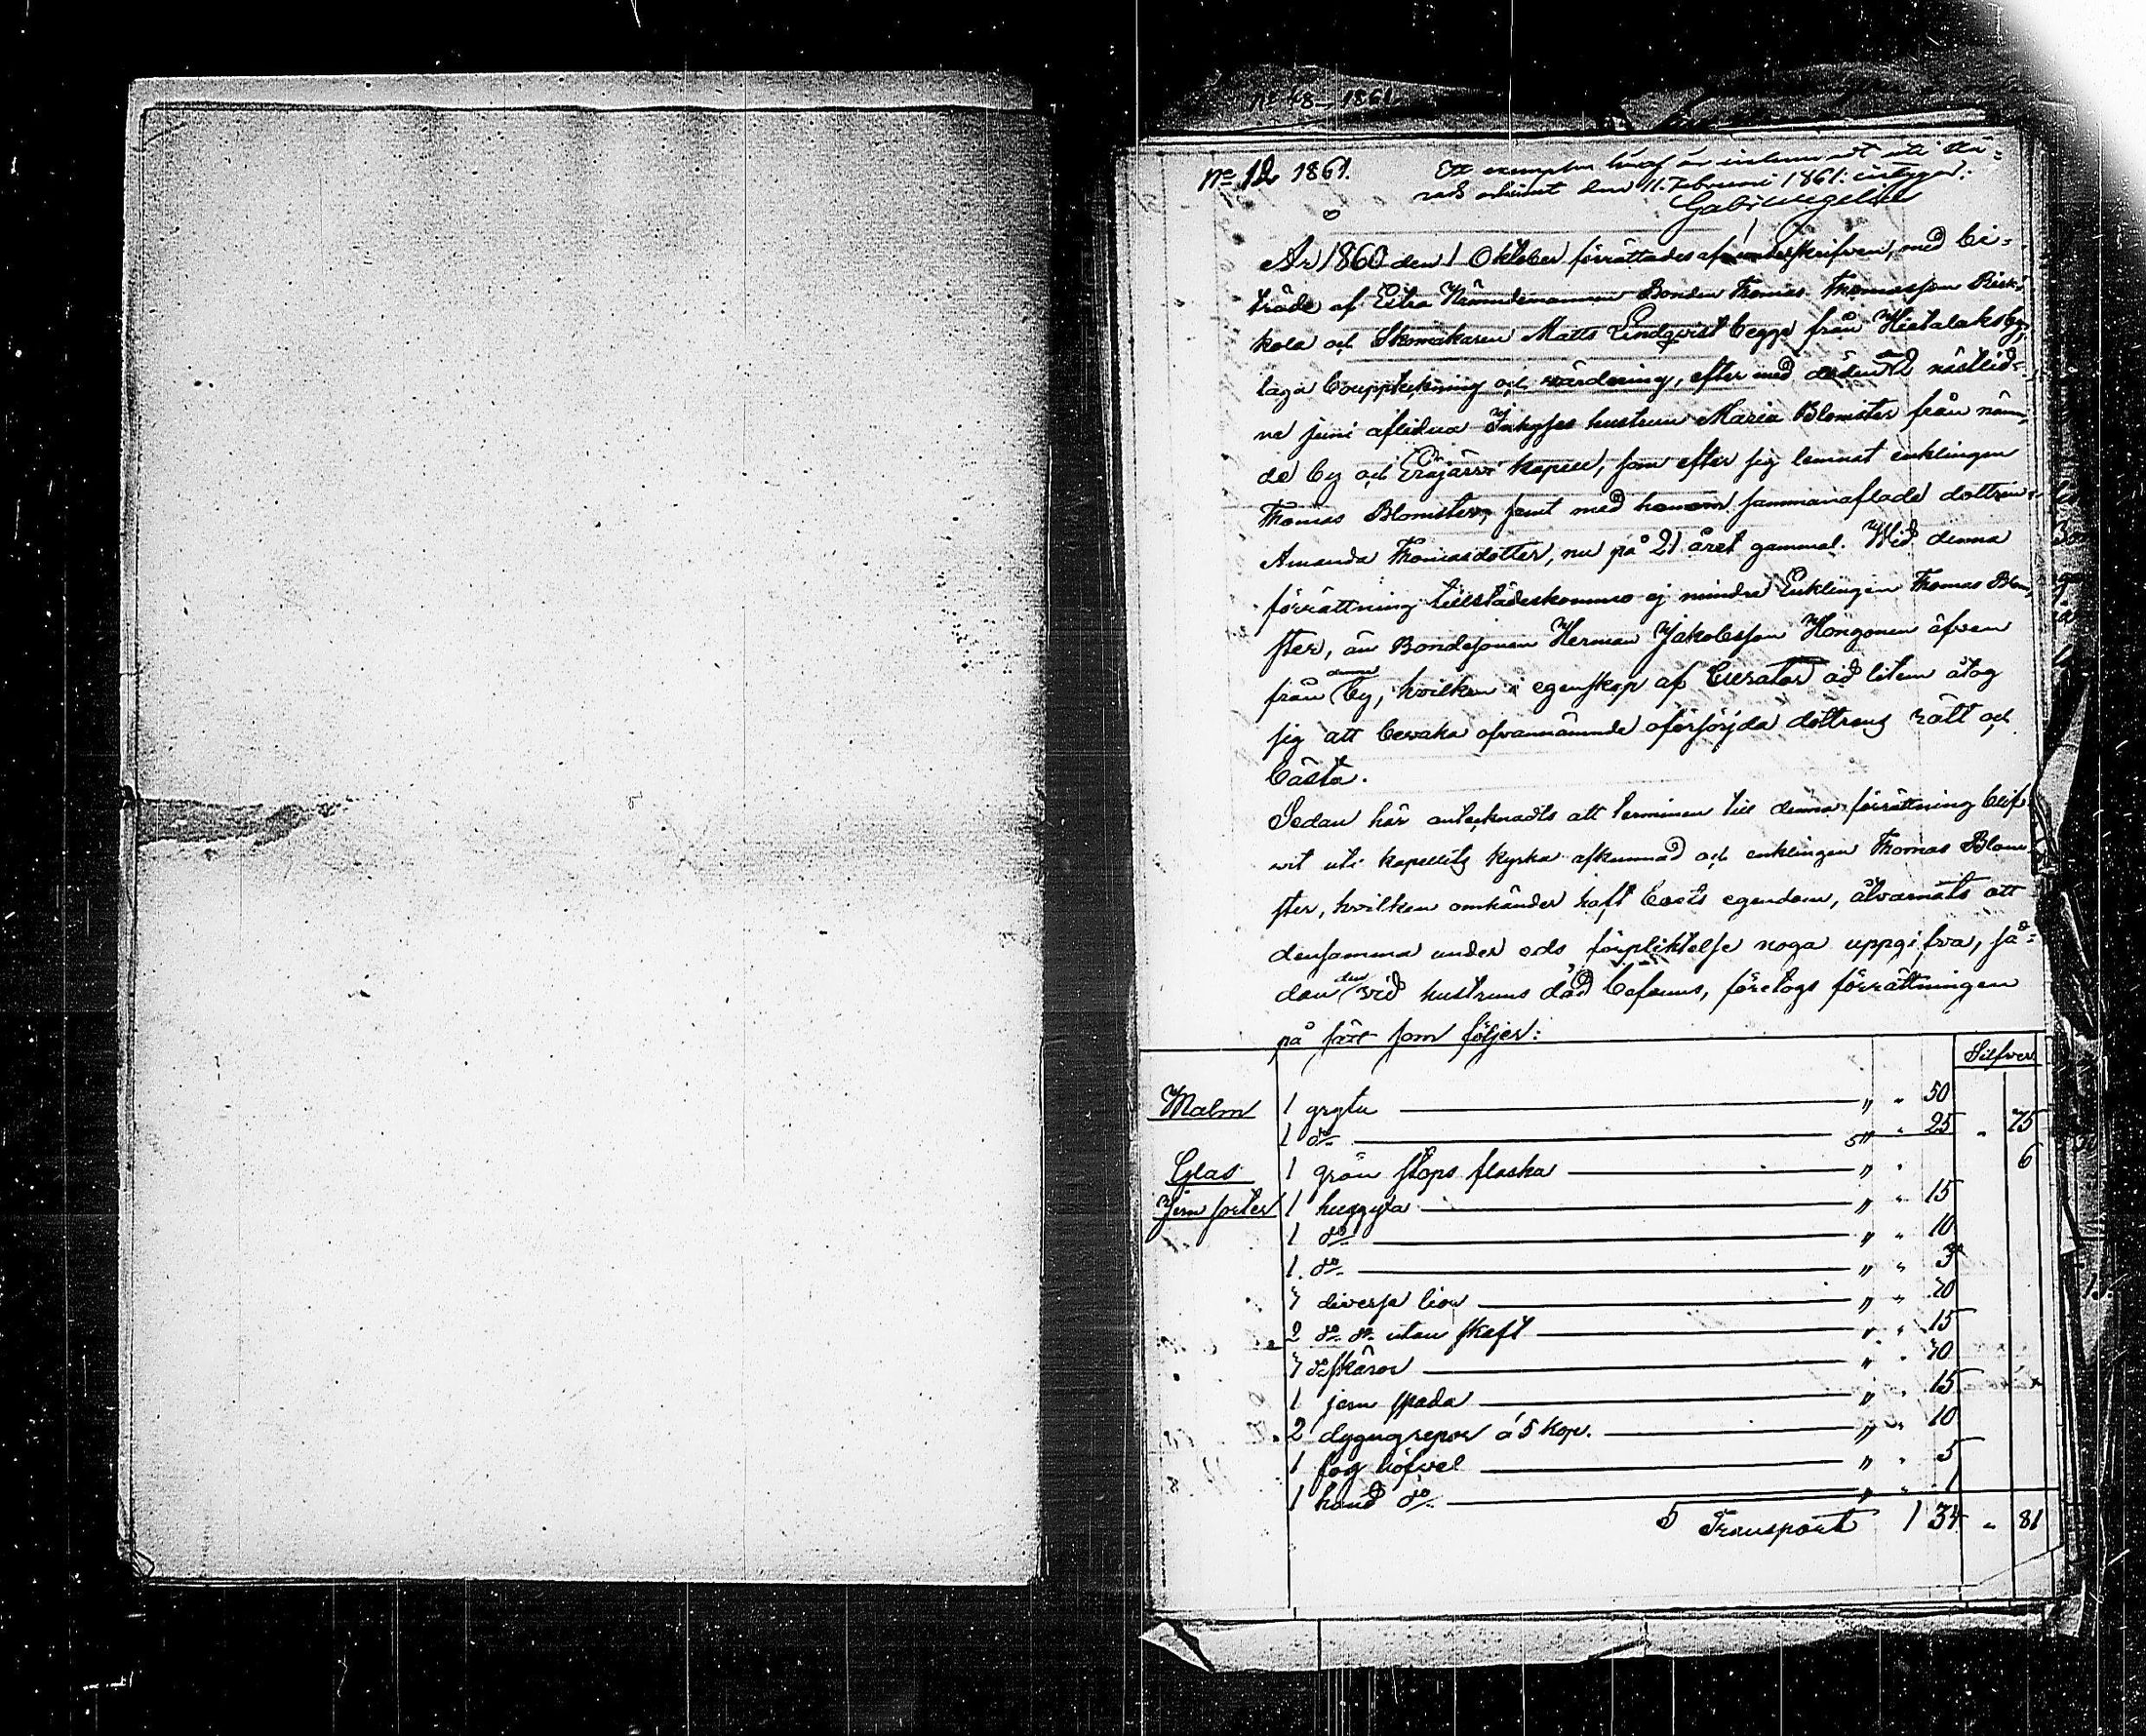 No 48 – 1861
No 12 1861.
Ett exemplar häraf är inlemnadt uti Hä=
rads arkivet den 11. Februari 1861: intygar:
Gabr Wegelius
År 1860 den 1 Oktober förrättades af underskrifven, med bi=
träde af Extra Nämndemannen Bonden Thomas Thomasson
kola och Skomakaren Matts Lindqvist begge från Hietalaks by,
laga bouppteckning och värdering, efter med döden nästlid=
ne juni aflidna Inhyses hustrun Maria Blomster från näm=
de by och Eräjärvi kapell, som efter sig lemnat enklingen
Thomas Blomster, samt med honom sammanaflade dottren
Amanda Thomasdotter, nu på 21 året gammal. Wid denna
förrättning tillstädeskommo ej mindre Enklingen Thomas Blom
ster, än Bondesonen Herman Jakobsson Hongonen äfven
från denna by, hvilken i egenskap af Curator ad litem åtog
sig att bevaka ofvannämnde oförsörjda dottrens rätt och
bästa.
Sedan här antecknadts att terminen till denna förrättning blif=
vit uti kapellets kyrka afkunnad och enklingen Thomas Blom
ster, hvilken omhänder haft boets egendom, åtvarnats att
densamma under eds förpliktelse noga uppgifva, så=
dan den vid hustruns död befanns, företogs förrättningen
på sätt som följer:
Silfver
Malm 1 gryta " " 50
1 do " " 25 " 75
Glas 1 grön stops flaska " " 6
Jern sorter 1 huggyxa " " 15
1 do " " 10
1. do " " 3
7 diverse liar " " 70
2 do do utan skaft " " 15
7 do skäror " " 70
1 jern spada " " 15
2 à 5 kop. " " 10
1 fog höfvel " " 5
1 hand do " " 1
Transport 1 34 " 81